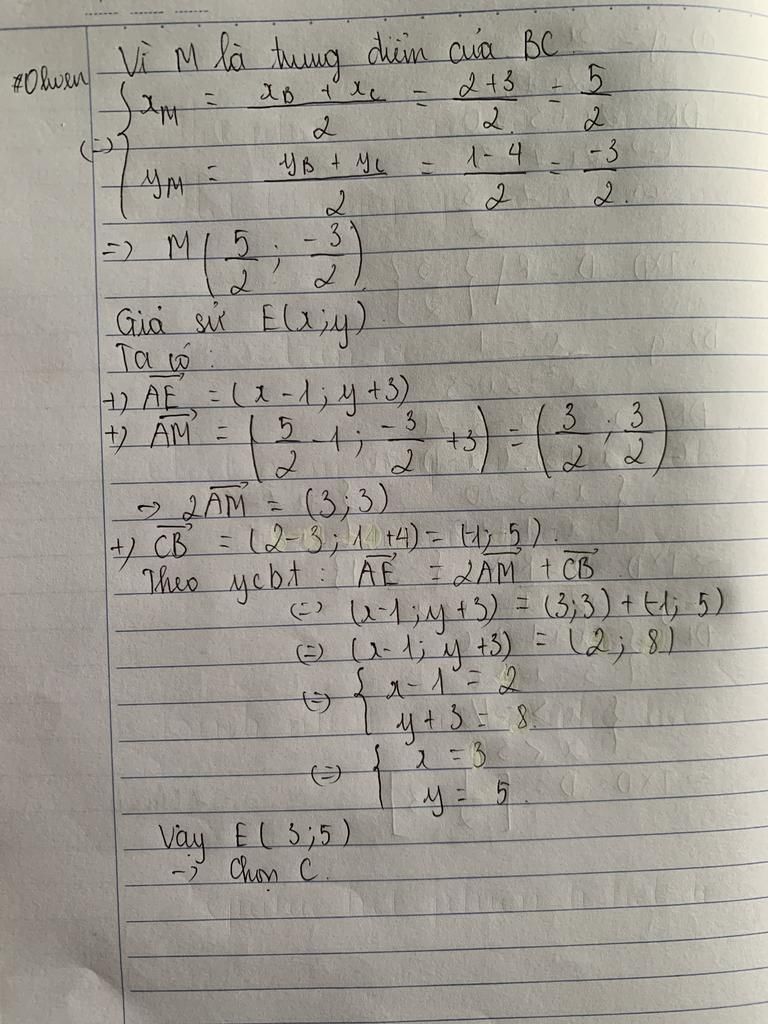 Vì M là trung điểm của BC.
#Ohwen
(=) { x_M = (x_B + x_C)/2 = (2+3)/2 = 5/2
y_M = (y_B + y_C)/2 = (1-4)/2 = -3/2.
=> M(5/2 ; -3/2)
Giả sử E(x;y)
Ta có:
+) \overrightarrow{AE} = (x-1; y+3)
+) \overrightarrow{AM} = (5/2 -1 ; -3/2 +3) = (3/2 ; 3/2)
-> 2\overrightarrow{AM} = (3;3)
+) \overrightarrow{CB} = (2-3; 1+4) = (-1; 5).
Theo ycbt : \overrightarrow{AE} = 2\overrightarrow{AM} + \overrightarrow{CB}
(=) (x-1; y+3) = (3;3) + (-1; 5)
(=) (x-1; y+3) = (2; 8)
(=) { x-1 = 2
y+3 = 8.
(=) { x = 3
y = 5.
Vậy E( 3;5)
-> Chọn C.